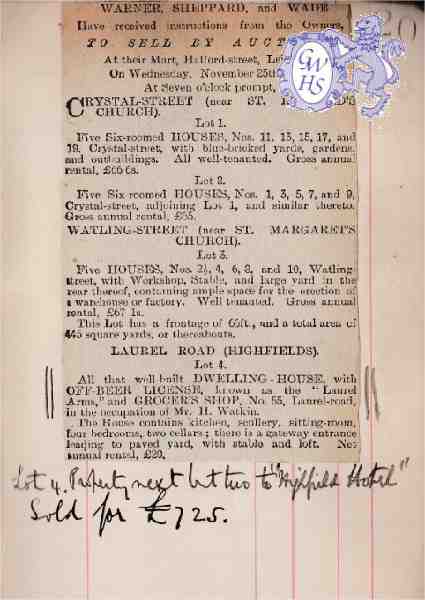 WARNER, SHEPPARD, and WADE
Have received instructions from the Owners,
TO SELL BY AUCT
At their Mart, Halford-street, Lei
On Wednesday, November 25th
At Seven o'clock prompt,
CRYSTAL-STREET (near ST.
CHURCH).
Lot 1.
Five Six-roomed HOUSES, Nos. 11, 13, 15, 17, and
19, Crystal-street, with blue-bricked yards, gardens,
and outbuildings. All well-tenanted. Gross annual
rental, £66 6s.
Lot 2.
Five Six-roomed HOUSES, Nos. 1, 3, 5, 7, and 9,
Crystal-street, adjoining Lot 1, and similar thereto.
Gross annual rental, £65.
WATLING-STREET (near ST. MARGARET'S
CHURCH).
Lot 3.
Five HOUSES, Nos. 2½, 4, 6, 8, and 10, Watling-
street, with Workshop, Stable, and large yard in the
rear thereof, containing ample space for the erection of
a warehouse or factory. Well tenanted. Gross annual
rental, £67 1s.
This Lot has a frontage of 66ft., and a total area of
445 square yards, or thereabouts.
LAUREL ROAD (HIGHFIELDS).
Lot 4.
All that well-built DWELLING-HOUSE, with
OFF-BEER LICENSE, known as the "Laurel
Arms," and GROCER'S SHOP, No. 55, Laurel-road,
in the occupation of Mr. H. Watkin.
The House contains kitchen, scullery, sitting-room,
four bedrooms, two cellars; there is a gateway entrance
leading to paved yard, with stable and loft. Net
annual rental, £29.
Lot 4. Property next but two to "Highfield Hotel"
Sold for £725.
GWHS